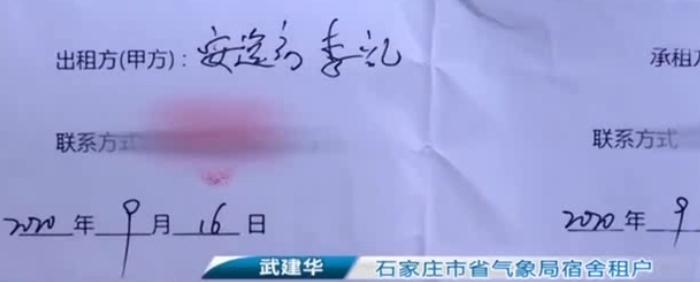 出租方(甲方)：安 李
承租方
联系方式
联系方式
2020年9月16日
2020年9
武建华 石家庄市省气象局宿舍租户